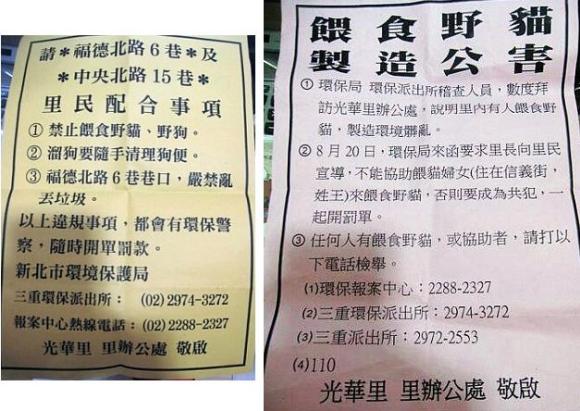 請＊福德北路6巷＊及
＊中央北路15巷＊
里民配合事項
①禁止餵食野貓、野狗。
②溜狗要隨手清理狗便。
③福德北路6巷巷口，嚴禁亂
丟垃圾。
以上違規事項，都會有環保警
察，隨時開單罰款。
新北市環境保護局
三重環保派出所：(02)2974-3272
報案中心熱線電話：(02)2288-2327
光華里 里辦公處 敬啟
餵食野貓
製造公害
①環保局 環保派出所稽查人員，數度拜
訪光華里辦公處，說明里內有人餵食野
貓，製造環境髒亂。
②8月20日，環保局來函要求里長向里民
宣導，不能協助餵貓婦女(住在信義街，
姓王)來餵食野貓，否則要成為共犯，一
起開罰單。
③任何人有餵食野貓，或協助者，請打以
下電話檢舉。
(1)環保報案中心：2288-2327
(2)三重環保派出所：2974-3272
(3)三重派出所：2972-2553
(4)110
光華里 里辦公處 敬啟